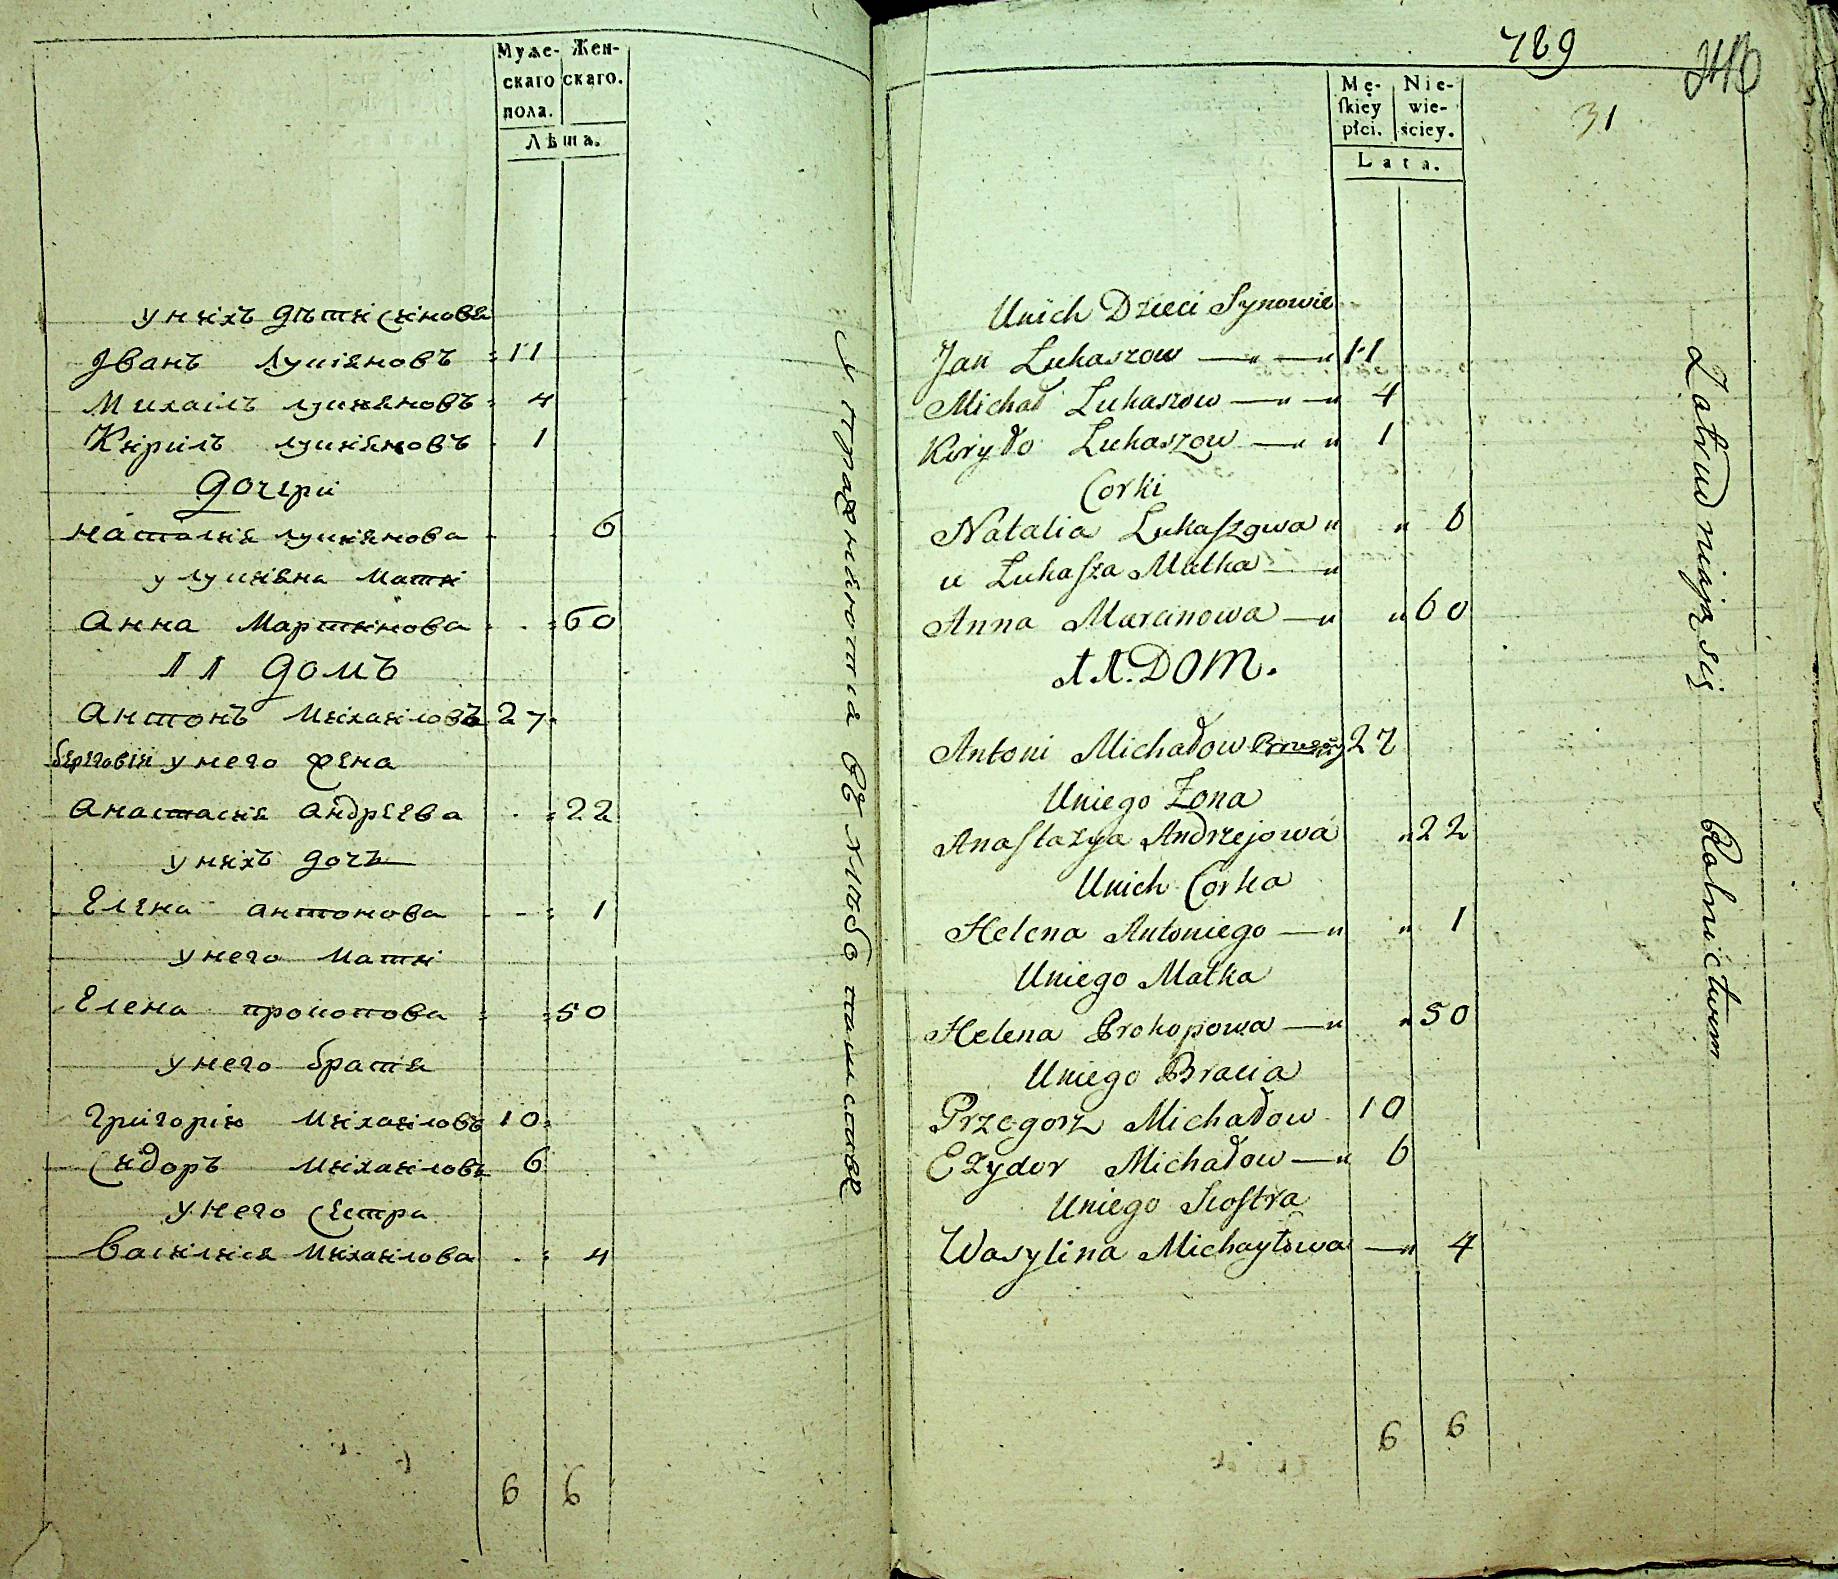 Муже- Жен-
скаго скаго.
пола.
Лѣта.
у нихъ дѣти синовя
Іванъ Лукіановъ 11
Михаілъ лукяновъ 4
Кирилъ лукяновъ 1
дочери
наталия лукянова 6
у лукіяна мати
Анна Мартинова 60
11 домъ
Антонъ Михаіловъ 27
у него жена
Анастасия Андреева 22
у нихъ дочъ
Елена антонова 1
у него мати
Елена прокопова 50
у него братя
Григорій Михаіловъ 10
Сидоръ Михаіловъ 6
у него Сестра
Василися Михаілова 4
6 6
789
31
Mę- Nie-
skiey wie-
płci. ściey.
Lata.
Unich Dzieci Synowie
Jan Lukaszow 11
Michał Lukaszow 4
Kiryło Lukaszow 1
Corki
Natalia Lukaszowa 6
u Lukasza Matka
Anna Marcinowa 60
11. DOM.
Antoni Michałow 27
Uniego Zona
Anastazya Andrzejowa 22
Unich Corka
Helena Antoniego 1
Uniego Matka
Helena Prokopowa 50
Uniego Bracia
Przegorz Michałow 10
Ezydor Michałow 6
Uniego Siostra
Wasylina Michayłowa 4
6 6
Zatrudniają się Rolnictwem